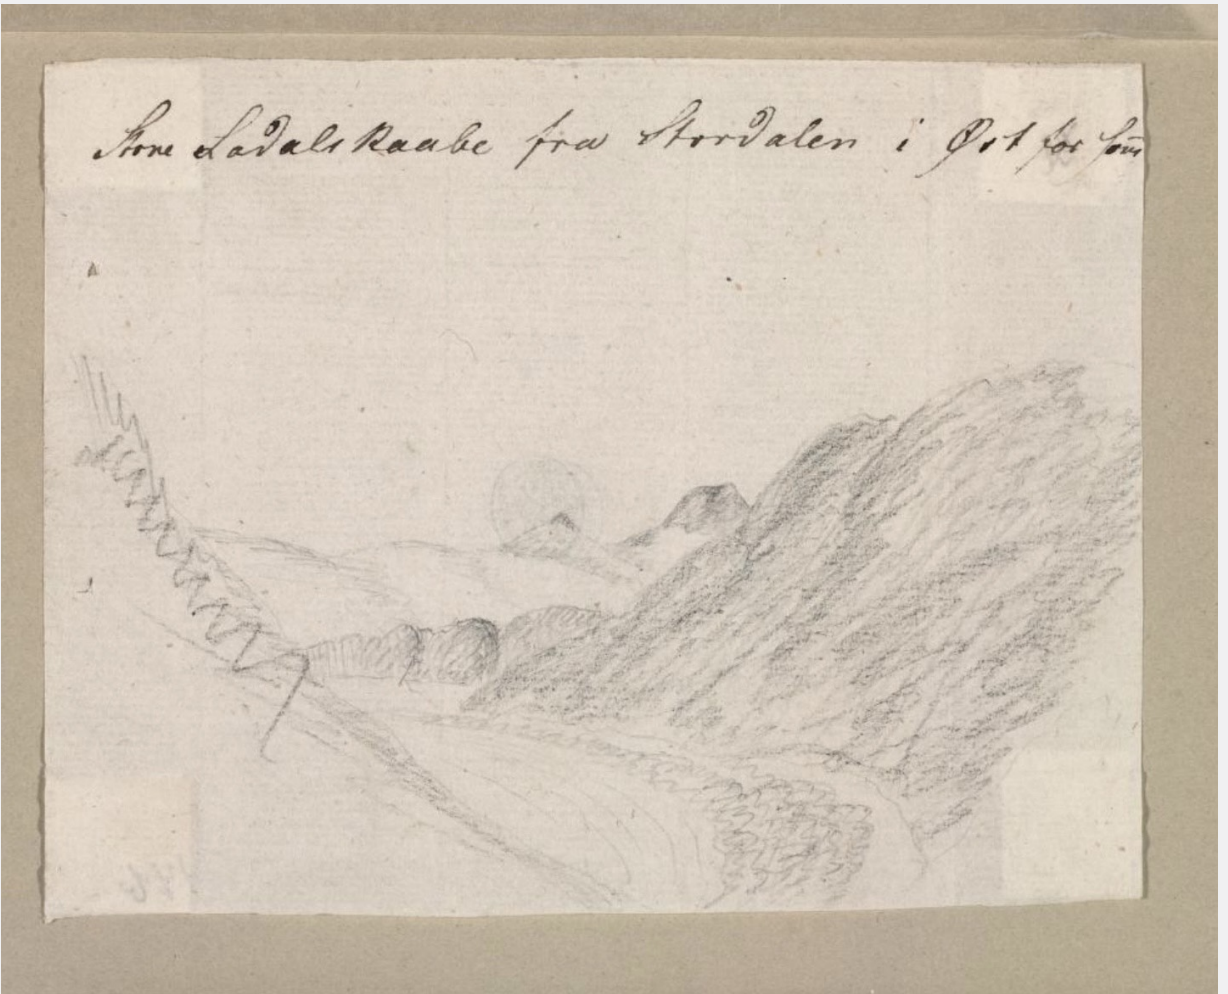 Store Ladalskaabe fra Stordalen i Øst for